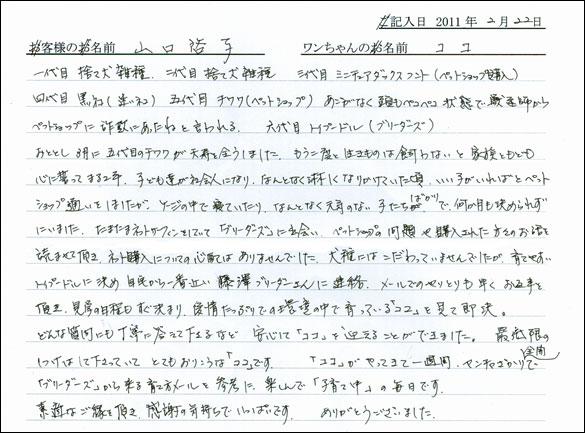 お記入日 2011年2月22日
お客様のお名前 山口 ワンちゃんのお名前 ココ
一代目 捨て犬雑種、二代目 捨て犬雑種 三代目 ミニチュアダックスフント(ペットショップ購入)
四代目 黒ねこ(迷いネコ) 五代目 チワワ(ペットショップ) あごがなく頭もペコペコ状態で獣医師から
ペットショップに詐欺にあったねと言われる。 六代目 トイプードル(ブリーダーズ)
おととし8月に五代目のチワワが天寿を全うしました。もう二度と生きものは飼わないと家族ともども
心に誓ってまる2年、子ども達が社会人になり、なんとなく淋しくなりかけていた頃、いい子がいればとペット
ショップ通いをしましたが、ケージの中で寝ていたり、なんとなく元気のない子たちばかりで、何か月も決められず
にいました。たまたまネットサーフィンをしていて「ブリーダーズ」に出会い、ペットショップの問題や購入された方々のお話を
読ませて頂き、ネット購入についての心配はありませんでした。犬種にはこだわっていませんでしたが、育てやすい
トイプードルに決め 自宅から一番近い 藤澤ブリーダーさんに連絡。メールでのやりとりも早く お返事を
頂き、見学の日程もすぐ決まり、愛情たっぷりの環境の中で育っている「ココ」を見て即決。
どんな質問にも丁寧に答えて下さるなど 安心して「ココ」を迎えることができました。 最低限の
しつけはして下さっていて とてもおりこうな「ココ」です。 「ココ」がやってきて一週間、ヤンチャざかりで
「ブリーダーズ」から来る育て方メールを参考に、楽しんで「子育て中」の毎日です。
素敵なご縁を頂き、感謝の気持ちでいっぱいです。 ありがとうございました。